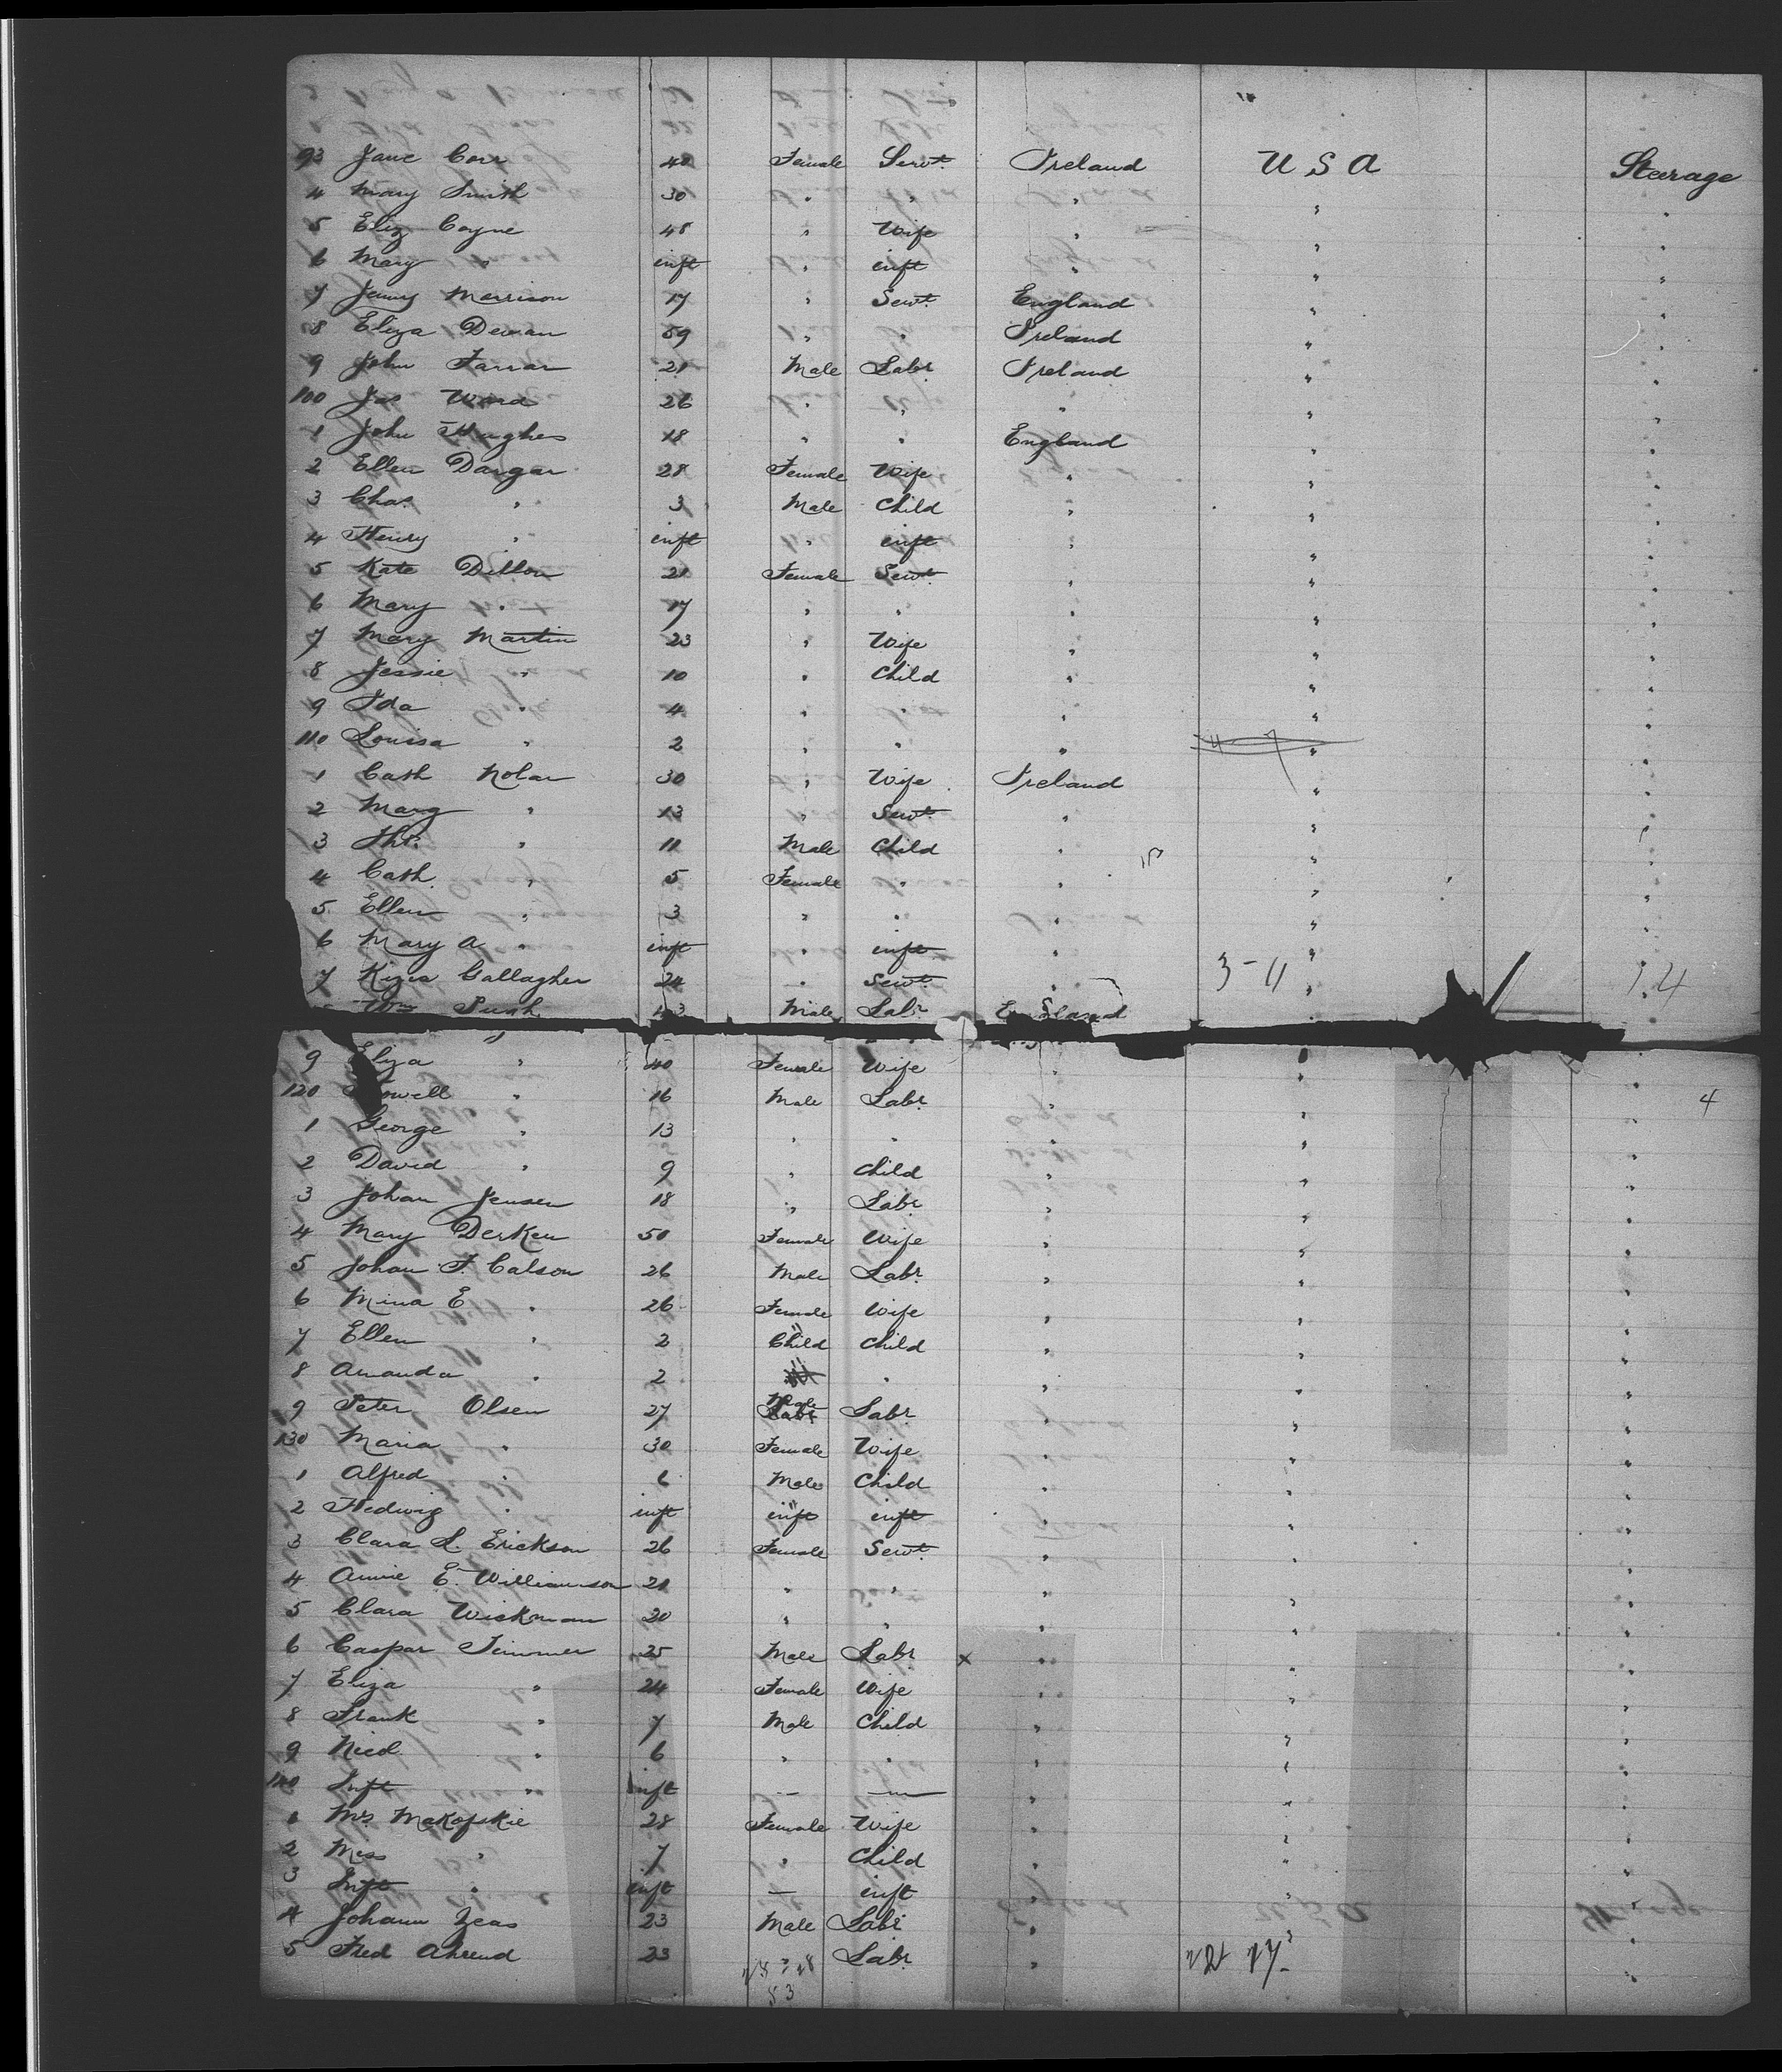 93 Jane Carr 40 Female Servt Ireland U S A Steerage
4 Mary Smith 30 " " " "
5 Eliz Coyne 48 " Wife " " "
6 Mary " inft " inft " " "
7 Jenny Merrison 17 " Servt England " "
8 Eliza Dewan 59 " " Ireland " "
9 John Farrar 21 Male Labr Ireland " "
100 Jas Ward 26 " " " " "
1 John Hughes 18 " " England " "
2 Ellen Dargan 28 Female Wife " " "
3 Chas. " 3 Male Child " " "
4 Henry " inft " inft " " "
5 Kate Dillon 21 Female Servt " " "
6 Mary " 17 " " " " "
7 Mary Martin 23 " Wife " " "
8 Jessie " 10 " Child " " "
9 Ida " 4 " " " " "
110 Louisa " 2 " " " " "
1 Cath Nolan 30 " Wife Ireland " "
2 Marg " 13 " Servt " " "
3 " 11 Male Child " " "
4 Cath. " 5 Female " " " "
5 Ellen " 3 " " " " "
6 Mary A " inft inft " " "
7 Gallagher 24 " Servt " 3-11 " 14
Wm 43 Male Labr England
9 Eliza " 40 Female Wife " " "
120 " 16 Male Labr " " " 4
1 George " 13 " " " " "
2 David " 9 " Child " " "
3 Johan Jensen 18 " Labr " " "
4 Mary Derken 50 Female Wife " " "
5 Johan F. Calson 26 Male Labr " " "
6 Mina E " 26 Female Wife " " "
7 Ellen " 2 Child Child " " "
8 Amanda " 2 " " " "
9 Peter Olsen 27 Male Labr " " "
130 Maria " 30 Female Wife " " "
1 Alfred " 6 Male Child " " "
2 Hedwig " inft inft inft " " "
3 Clara L. Erickson 26 Female Servt " " "
4 Annie E. Williamson 21 " " " " "
5 Clara Wickman 20 " " " " "
6 Caspar Timmer 25 Male Labr x " " "
7 Eliza " 24 Female Wife " " "
8 Frank " 7 Male Child " " "
9 Nicol " 6 " " " " "
140 Inft " inft — — " " "
1 Mrs Makofskie 28 Female Wife " " "
2 Miss " 7 " Child " " "
3 Inft " inft — inft " " "
4 Johann 23 Male Labr " "
5 Fred Ahrend 23 Labr " "